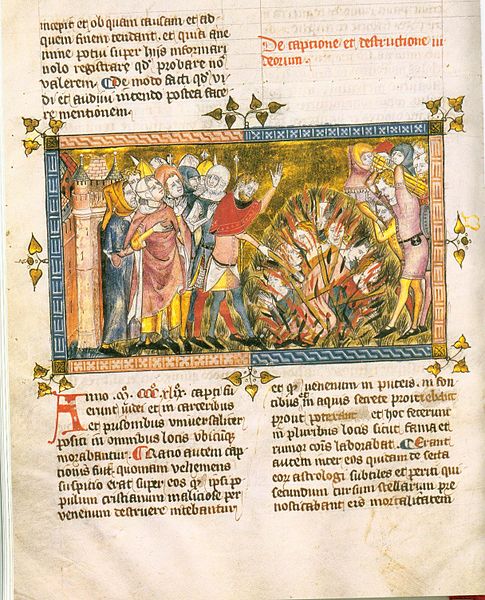 incepit et ob quam causam et ad
quem finem tendant. et quia ꝗ̃
nime potui super hijs informari
nolo registrare qd̾ probare no
valerem. De modo facti qd̾ vi
di et audiui intendo postea face
re mentionem.
De captione et destructione iu
deorum.
Anno . m°. ccc°. xlix°. capti fu
erunt iudei et in carceribus
et prisonibus vniuersaliter
positi in omnibus locis vbicūqȝ
morabantur. Ratio autem cap
tionis fuit. quoniam vehemens
suspitio erat super eos qd̾ ipsi po
pulum cristianum maliciose per
venenum destruere nitebantur
et qd̾ venenum in puteis. in fon
tibus et in aquis secrete
prout poterant et hoc fecerunt
in pluribus locis sicut fama et
rumor cōis laborabat. Erant
autem inter eos quidam de secta
eorum astrologi subtiles et periti qui
secundum cursum stellarum pre
nosticabant eis mortalitatem